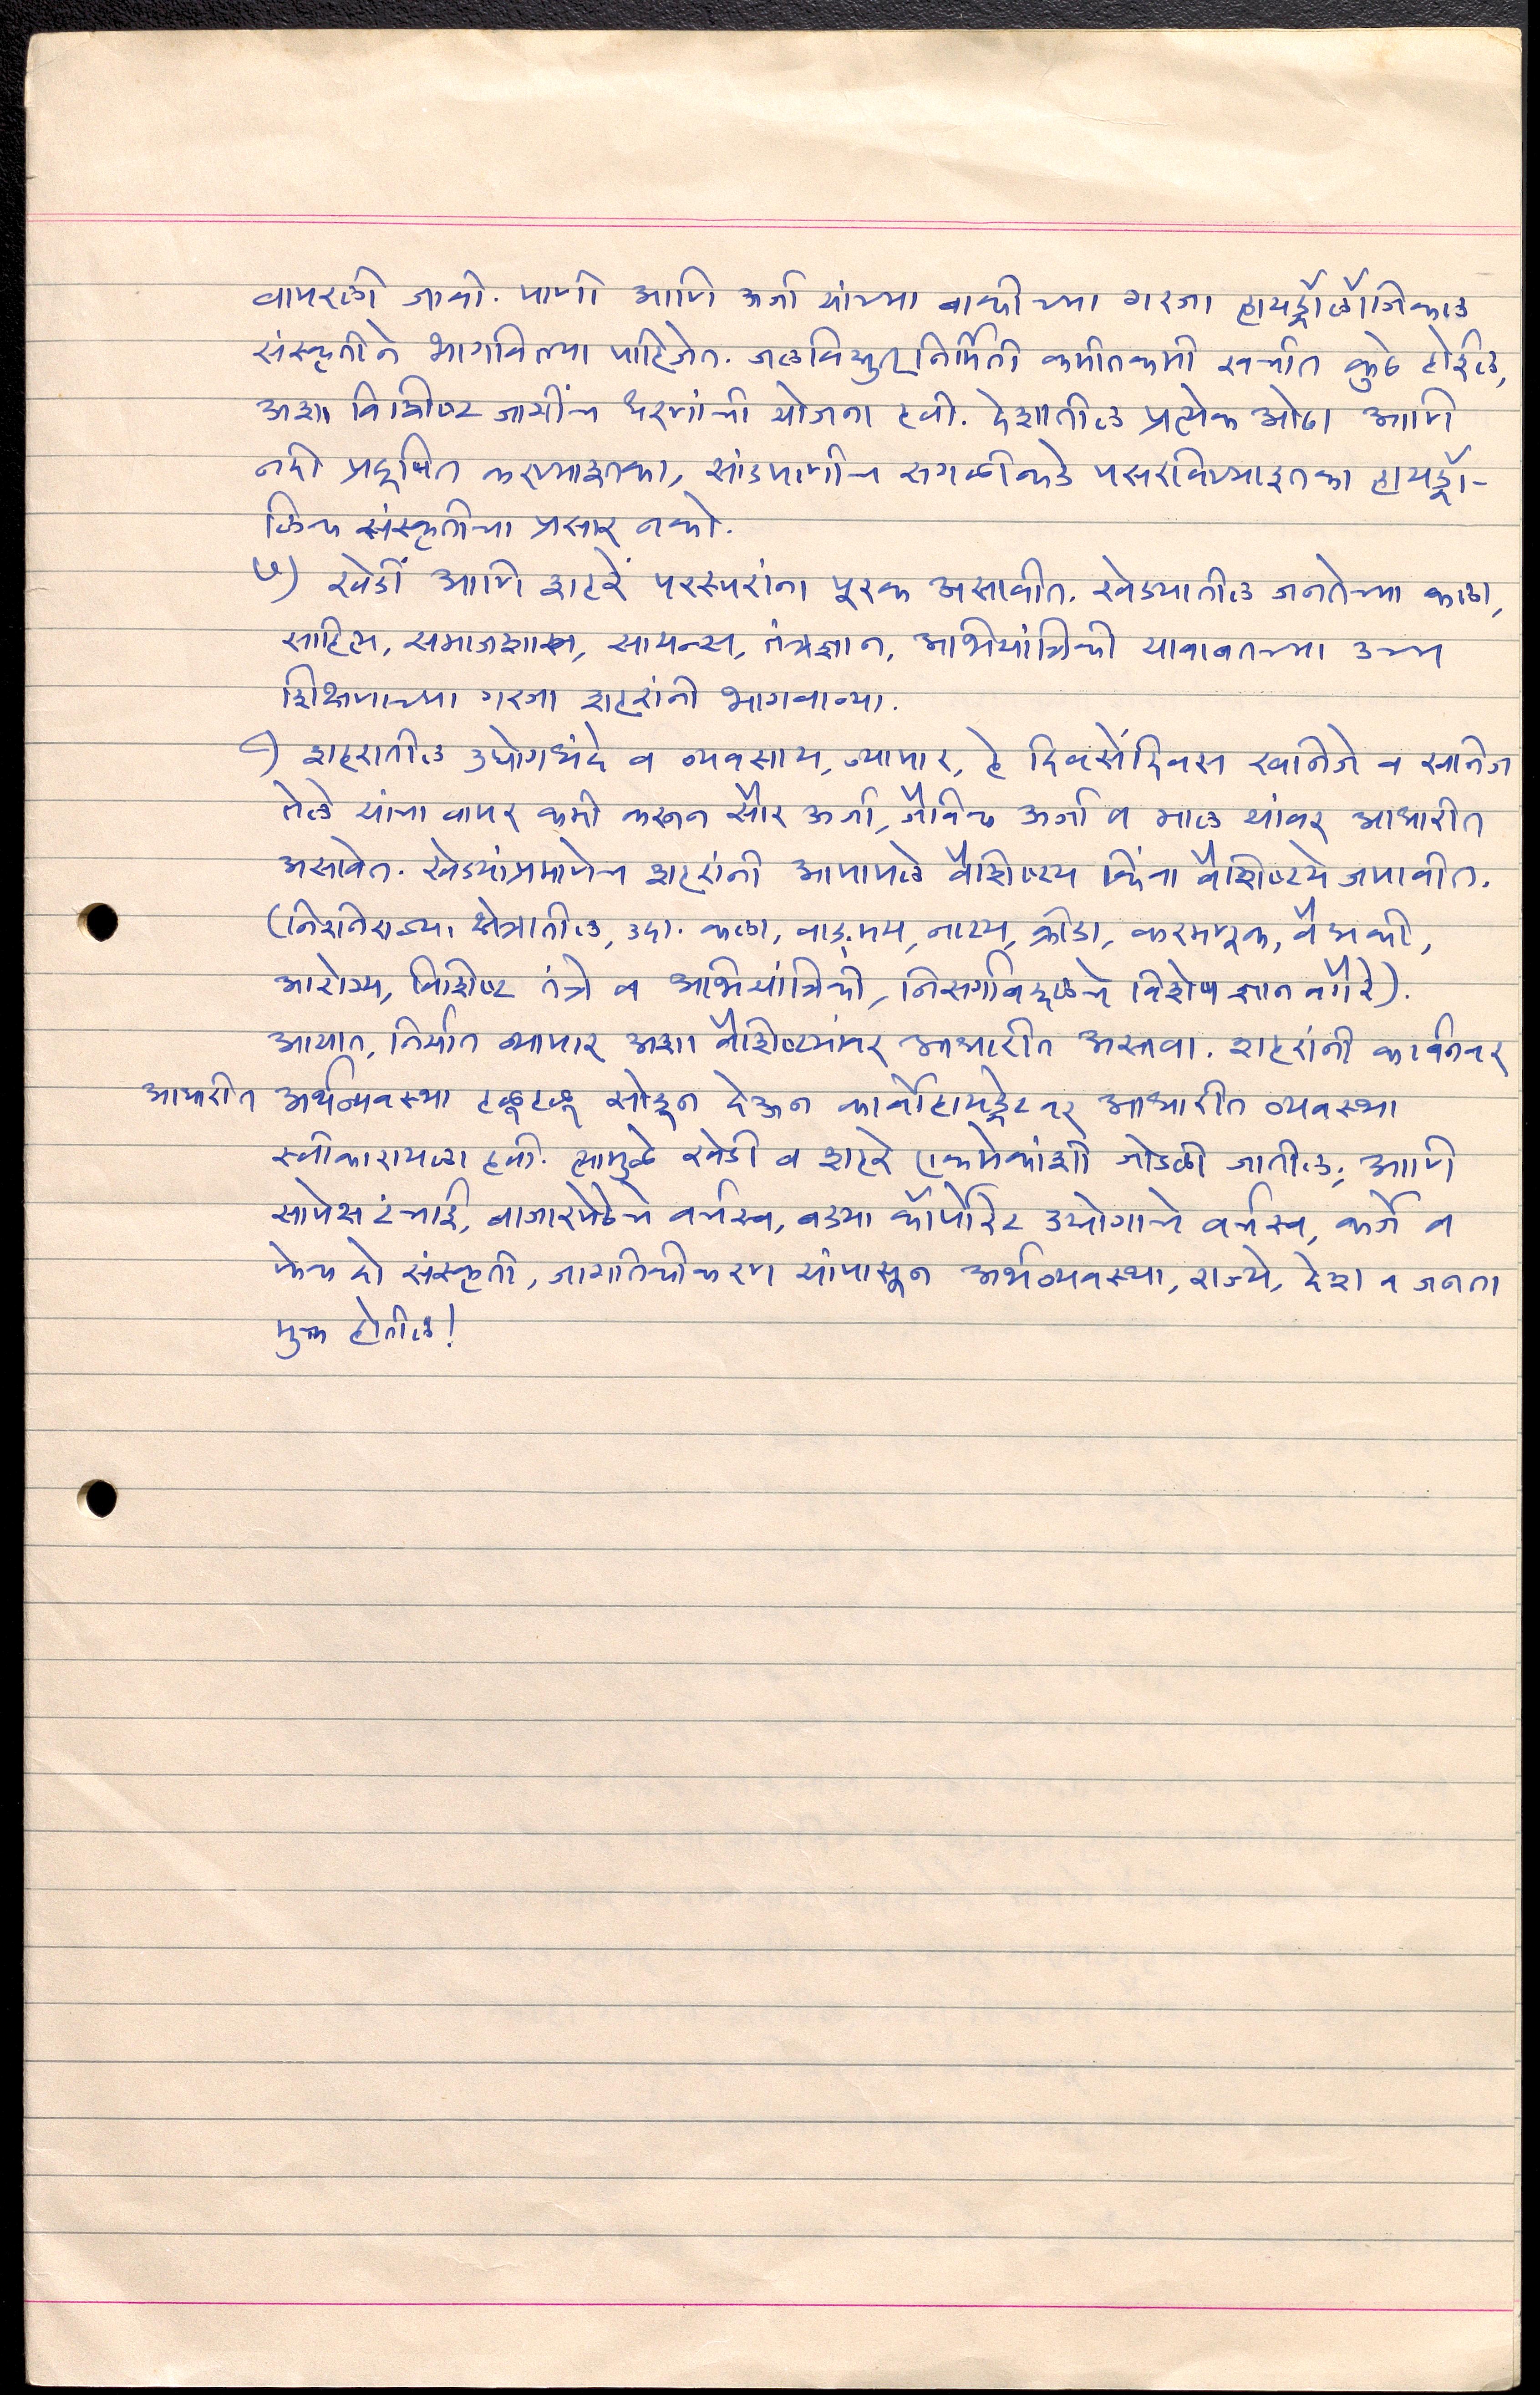 वापरली जावी. पाणी आणि ऊर्जा यांच्या बाकीच्या गरजा हायड्रॉलॉजिकल
संस्कृतीने भागविल्या पाहिजेत. जलविद्युत् निर्मिती कमीतकमी खर्चात कुठे होईल,
अशा विशिष्ट जागींच धरणांची योजना हवी. देशातील प्रत्येक ओढा आणि
नदी प्रदूषित करण्याइतका, सांडपाणीच सगळीकडे पसरविण्याइतका हायड्रॉ-
लिक संस्कृतीचा प्रसार नको.
७) खेडीं आणि शहरें परस्परांना पूरक असावीत. खेड्यातील जनतेच्या कला,
साहित्य, समाजशास्त्र, सायन्स, तंत्रज्ञान, अभियांत्रिकी याबाबतच्या उच्च
शिक्षणाच्या गरजा शहरांनी भागवाव्या.
८) शहरातील उद्योगधंदे व व्यवसाय, व्यापार, हे दिवसेंदिवस खनिजे व खनिज
तेले यांचा वापर कमी करून सौर ऊर्जा, जैविक ऊर्जा व माल यांवर आधारीत
असावेत. खेड्यांप्रमाणेच शहरांनी आपापले वैशिष्ट्य किंवा वैशिष्ट्ये जपावीत.
(निरनिराळ्या क्षेत्रातील, उदा. कला, वाङ्मय, नाट्य, क्रीडा, करमणूक, वैद्यकी,
आरोग्य, विशिष्ट तंत्रे व अभियांत्रिकी, निसर्गाबद्दलचे विशेष ज्ञान वगैरे).
आयात, निर्यात व्यापार अशा वैशिष्ट्यांवर आधारीत असावा. शहरांनी कार्बनवर
आधारीत अर्थव्यवस्था हळूहळू सोडून देऊन कार्बोहायड्रेटवर आधारीत व्यवस्था
स्वीकारायला हवी. त्यामुळे खेडी व शहरे एकमेकांशी जोडली जातील; आणि
सापेक्ष टंचाई, बाजारपेठेचे वर्चस्व, बड्या कॉर्पोरेट उद्योगाचे वर्चस्व, कर्जे व
फेक दो संस्कृती, जागतिकीकरण यांपासून अर्थव्यवस्था, राज्ये, देश व जनता
मुक्त होतील!